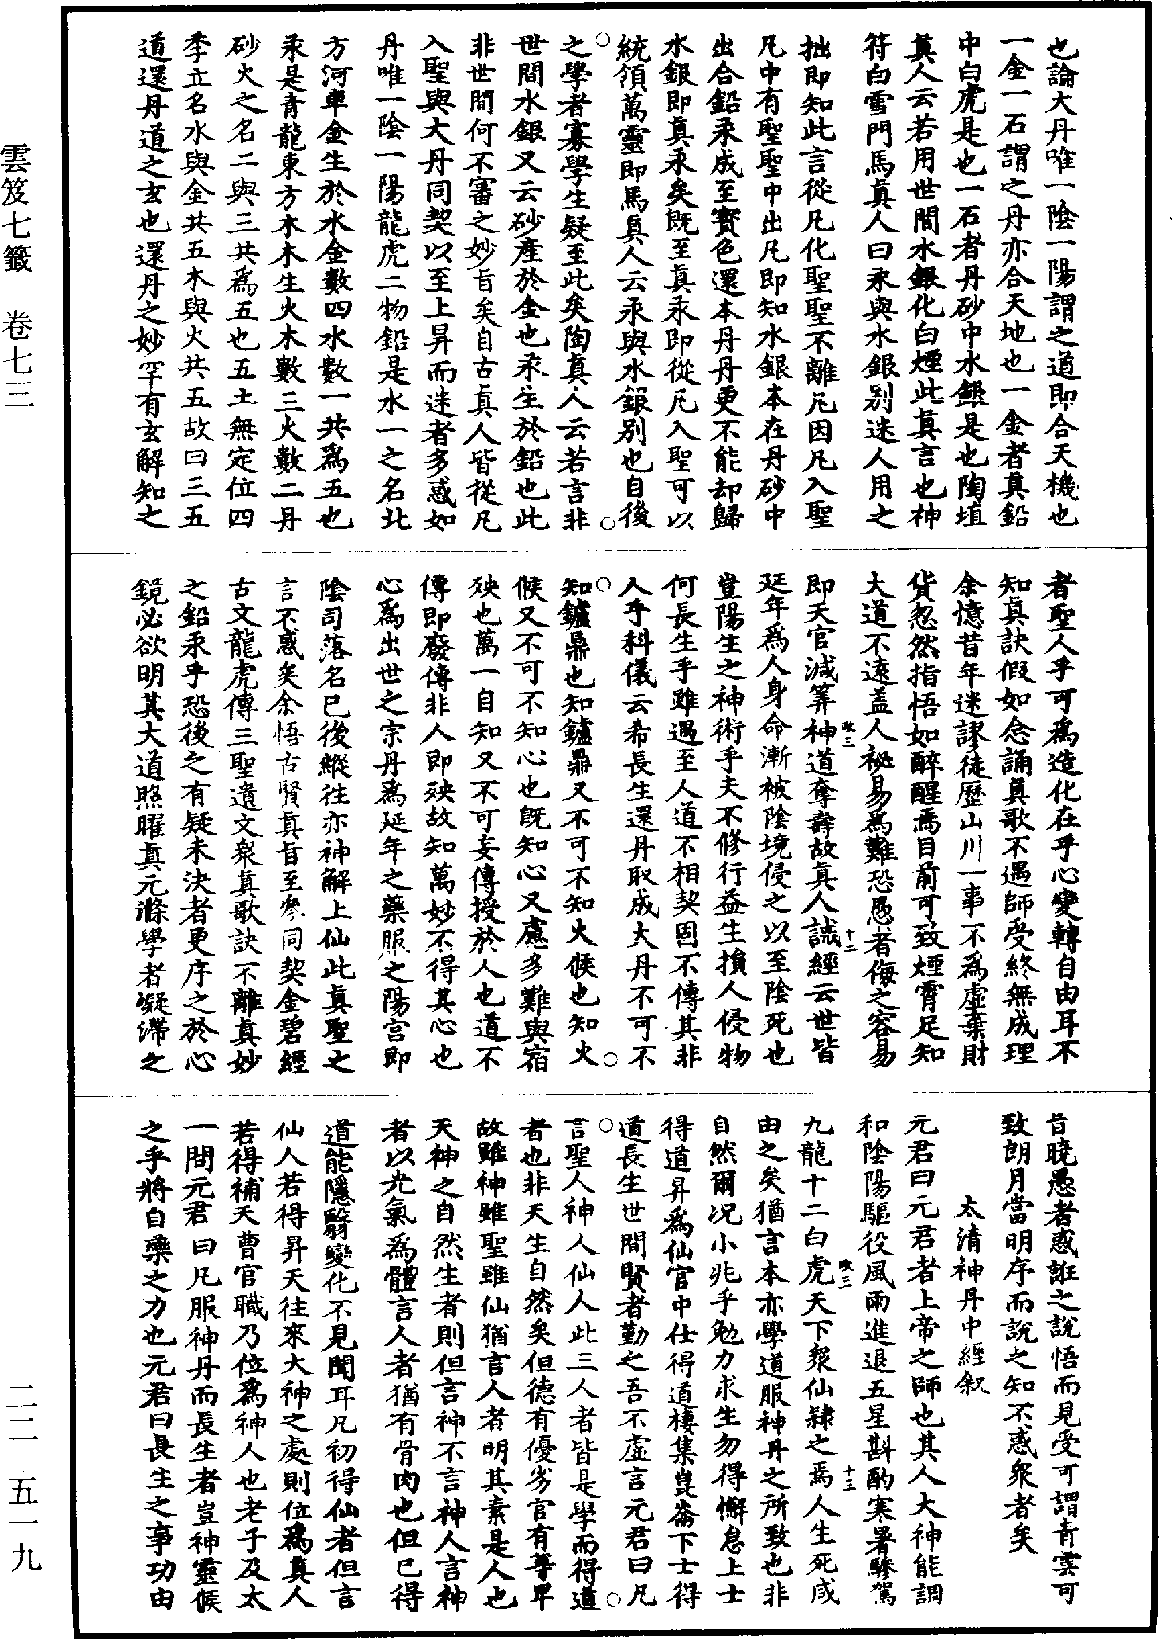 也論大丹唯一陰一陽謂之道即合天機也
一金一石謂之丹亦合天地也一金者真鉛
中白虎是也一石者丹砂中水銀是也陶埴
真人云若用世間水銀化白煙此真言也神
符白雪門馬真人曰汞與水銀別迷人用之
拙即知此言從凡化聖聖不離凡因凡入聖
凡中有聖聖中出凡即知水銀本在丹砂中
出合鉛汞成至寶色還本丹丹更不能却歸
水銀即真汞矣既至真汞即從凡入聖可以
統領萬靈即馬真人云汞與水銀別也自後
之學者寡學生疑至此矣陶真人云若言非
世間水銀又云砂產於金也汞生於鉛也此
非世間何不審之妙旨矣自古真人皆從凡
入聖與大丹同契以至上昇而迷者多惑如
丹唯一陰一陽龍虎二物鉛是水一之名北
方河車金生於水金數四水數一共為五也
汞是青龍東方木木生火木數三火數二丹
砂火之名二與三共為五也五土無定位四
季立名水與金共五木與火共五故曰三五
道還丹道之玄也還丹之妙罕有玄解知之
者聖人乎可為造化在乎心變轉自由耳不
知真訣假如念誦真歌不遇師受終無成理
余憶昔年迷謬徒歷山川一事不為虛棄財
貨忽然指悟如醉醒焉目前可致煙霄足知
大道不遠蓋人祕易為難恐愚者侮之容易
即天官減筭神道奪壽故真人誡經云世皆
延年為人身命漸被陰境侵之以至陰死也
豈陽生之神術乎夫不修行益生損人侵物
何長生乎雖遇至人道不相契固不傳其非
人乎科儀云希長生還丹取成大丹不可不
知鑪鼎也知鑪鼎又不可不知火候也知火
候又不可不知心也既知心又慮多難與宿
殃也萬一自知又不可妄傳授於人也道不
傳即廢傳非人即殃故知萬妙不得其心也
心為出世之宗丹為延年之藥服之陽宮即
陰司落名已後縱往亦神解上仙此真聖之
言不惑矣余悟古賢真旨至參同契金碧經
古文龍虎傳三聖遺文眾真歌訣不離真妙
之鉛汞乎恐後之有疑未決者更序之於心
鏡必欲明其大道照曜真元滌學者凝滯之
昔曉愚者惑誑之說悟而見受可謂青雲可
致朗月當明序而說之知不惑眾者矣
太清神丹中經敘
元君曰元君者上帝之師也其人大神能調
和陰陽驅役風雨進退五星斟酌寒暑驂駕
九龍十二白虎天下眾仙隸之焉人生死咸
由之矣猶言本亦學道服神丹之所致也非
自然爾況小兆乎勉力求生勿得懈怠上士
得道昇為仙官中仕得道棲集崑崙下士得
道長生世間賢者勤之吾不虛言元君曰凡
言聖人神人仙人此三人者皆是學而得道
者也非天生自然矣但德有優劣官有尊卑
故雖神雖聖雖仙猶言人者明其素是人也
天神之自然生者則但言神不言神人言神
者以光氣為體言人者猶有骨肉也但已得
道能隱翳變化不見聞耳凡初得仙者但言
仙人若得昇天往來大神之處則位為真人
若得補天曹官職乃位為神人也老子及太
一問元君曰凡服神丹而長生者豈神靈候
之乎將自藥之力也元君曰長生之事功由
雲笈七籤　卷七三
二二—五一九